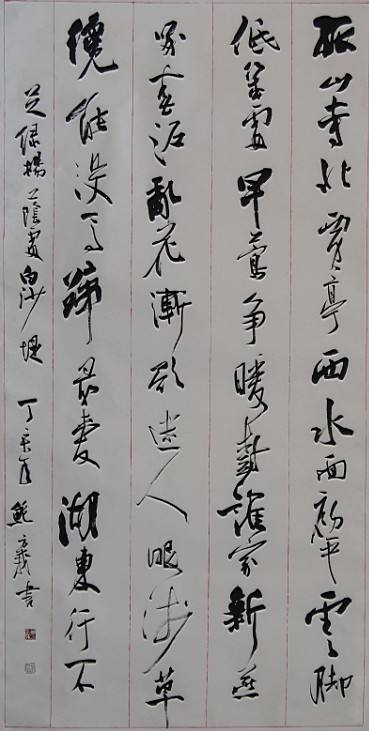 孤山寺北賈亭西水面初平雲脚
低幾處早鶯争暖樹誰家新燕
啄春泥亂花漸欲迷人眼淺草
纔能没馬蹄最愛湖東行不
足緑楊陰裏白沙堤 丁亥年 鮑書